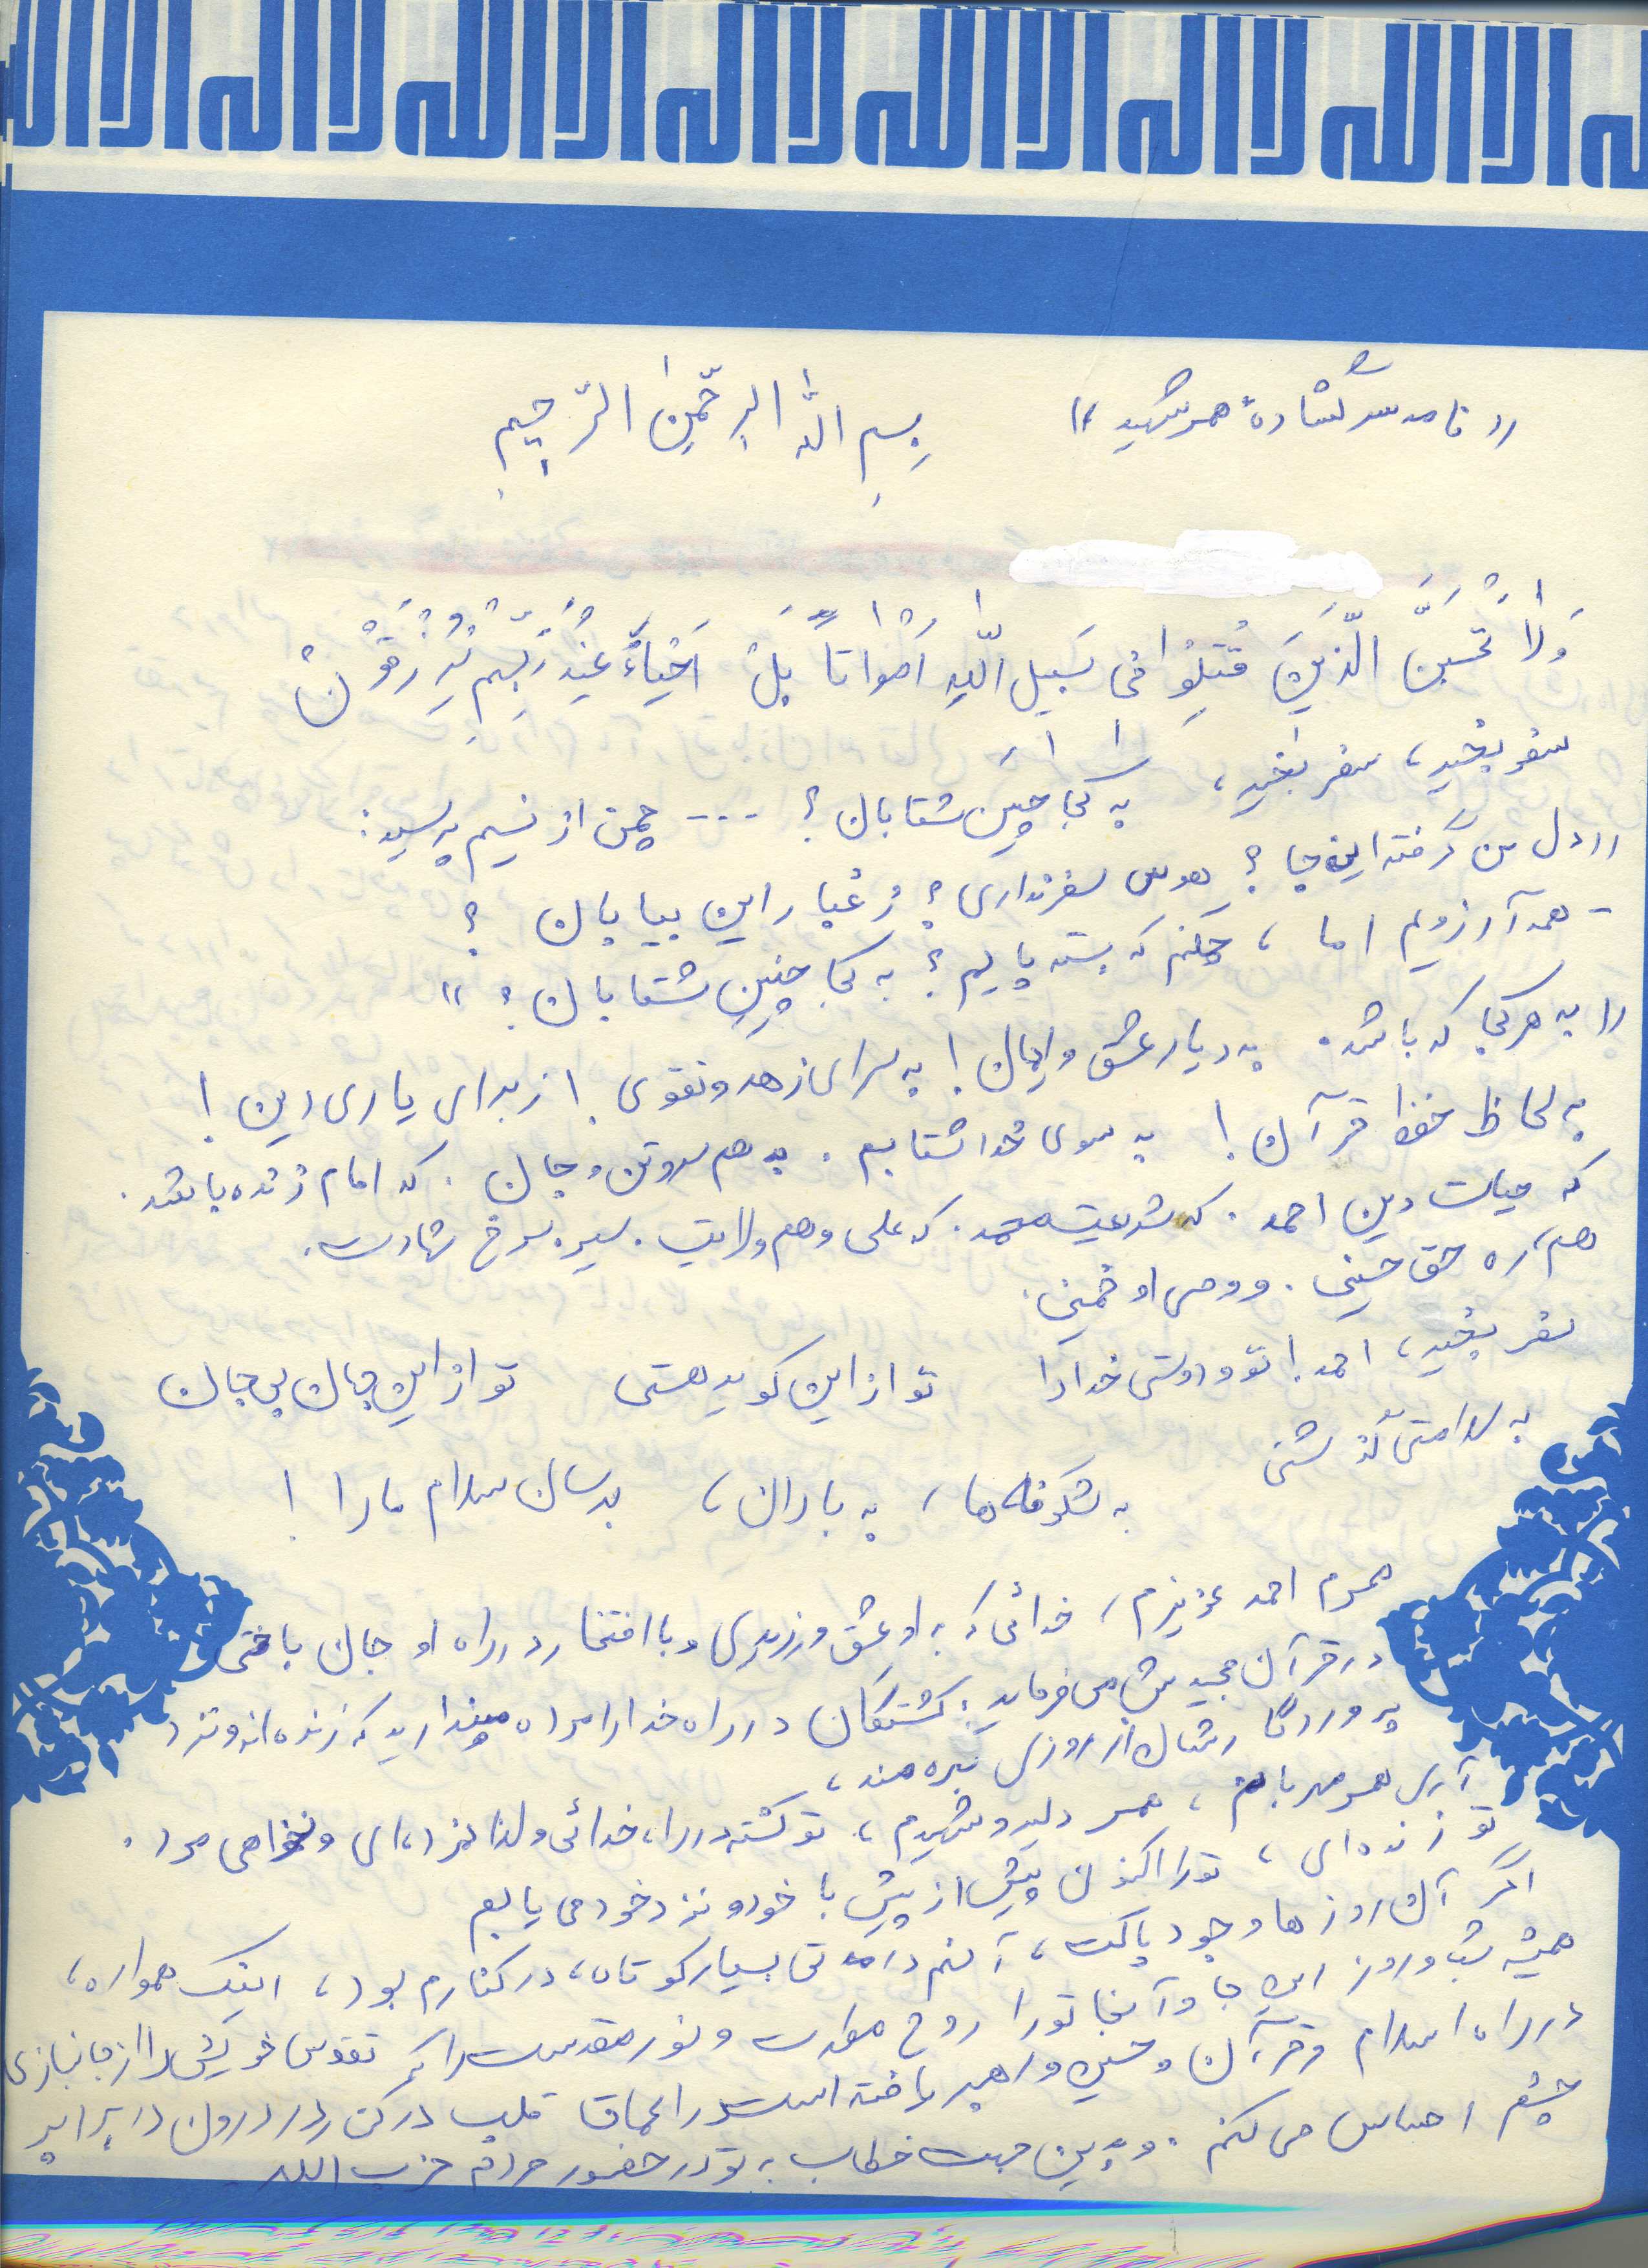 لا اله الا الله لا اله الا الله لا اله الا الله لا اله الا الله
«نامه سرگشادهٔ همسر شهید» بِسمِ اللهِ الرحمٰنِ الرّحیمِ
وَلاٰ تَحْسَبَنَّ الَّذینَ قُتِلُوا فی سَبیلِ اللّٰهِ اَمْواتاً بَلْ اَحْیٰاءٌ عِنْدَ رَبِّهِمْ یُرْزَقُونْ
سفر بخیر، سفر بخیر، به کجا چنین شتابان؟ --- چمن از نسیم پرسید:
«دل من گرفته اینجا؟ هوس سفر نداری؟ ز غبار این بیابان؟
- همه آرزویم اما، چکنم که بسته پایم؟ به کجا چنین شتابان؟»
«به هر کجا که باشد. به دیار عشق و ایمان! به سرای زهد و تقوی! از برای یاری دین!
به لحاظ حفظ قرآن! به سوی خدا شتابم. به هم سر و تن و جان. که امام زنده باشد.
که حیات دین احمد. که شریعت محمد. که علی و هم ولایت. سرخ شهادت.
هم ره حق حسینی. و وصی او خمینی.
سفر بخیر، احمد! تو و دوستی خدا را تو از این کویر هستی تو از این جهان بی جان
به سلامتی گذشتی
به شکوفه ها، به باران، برسان سلام ما را!
همسرم احمد عزیزم، خدائی که به او عشق ورزیدی و با افتخار در راه او جان باختی
در قرآن مجیدش می فرماید: کشتگان در راه خدا را مرده مپندارید که زنده اند و نزد
پروردگارشان از روزی بهره مند،
آری همسر مهربانم، همسر دلیر و شهیدم، تو کشته در راه خدائی و لذا نمرده ای و نخواهی مرد.
تو زنده ای، تو را اکنون بیش از پیش با خود و نزد خود می یابم
اگر آن روزها وجود پاکت، آنهم در مدتی بسیار کوتاه، در کنارم بود، اینک همواره،
همیشه شب و روز اینجا و آنجا تو را روح و نور مقدست را که تقدس خویش را از جانبازی
در راه اسلام و قرآن و حسین و رهبر یافته است در اعماق قلب در کنار در درون در برابر
چشم احساس می کنم. و بدین جهت خطاب به تو در حضور مردم حزب الله